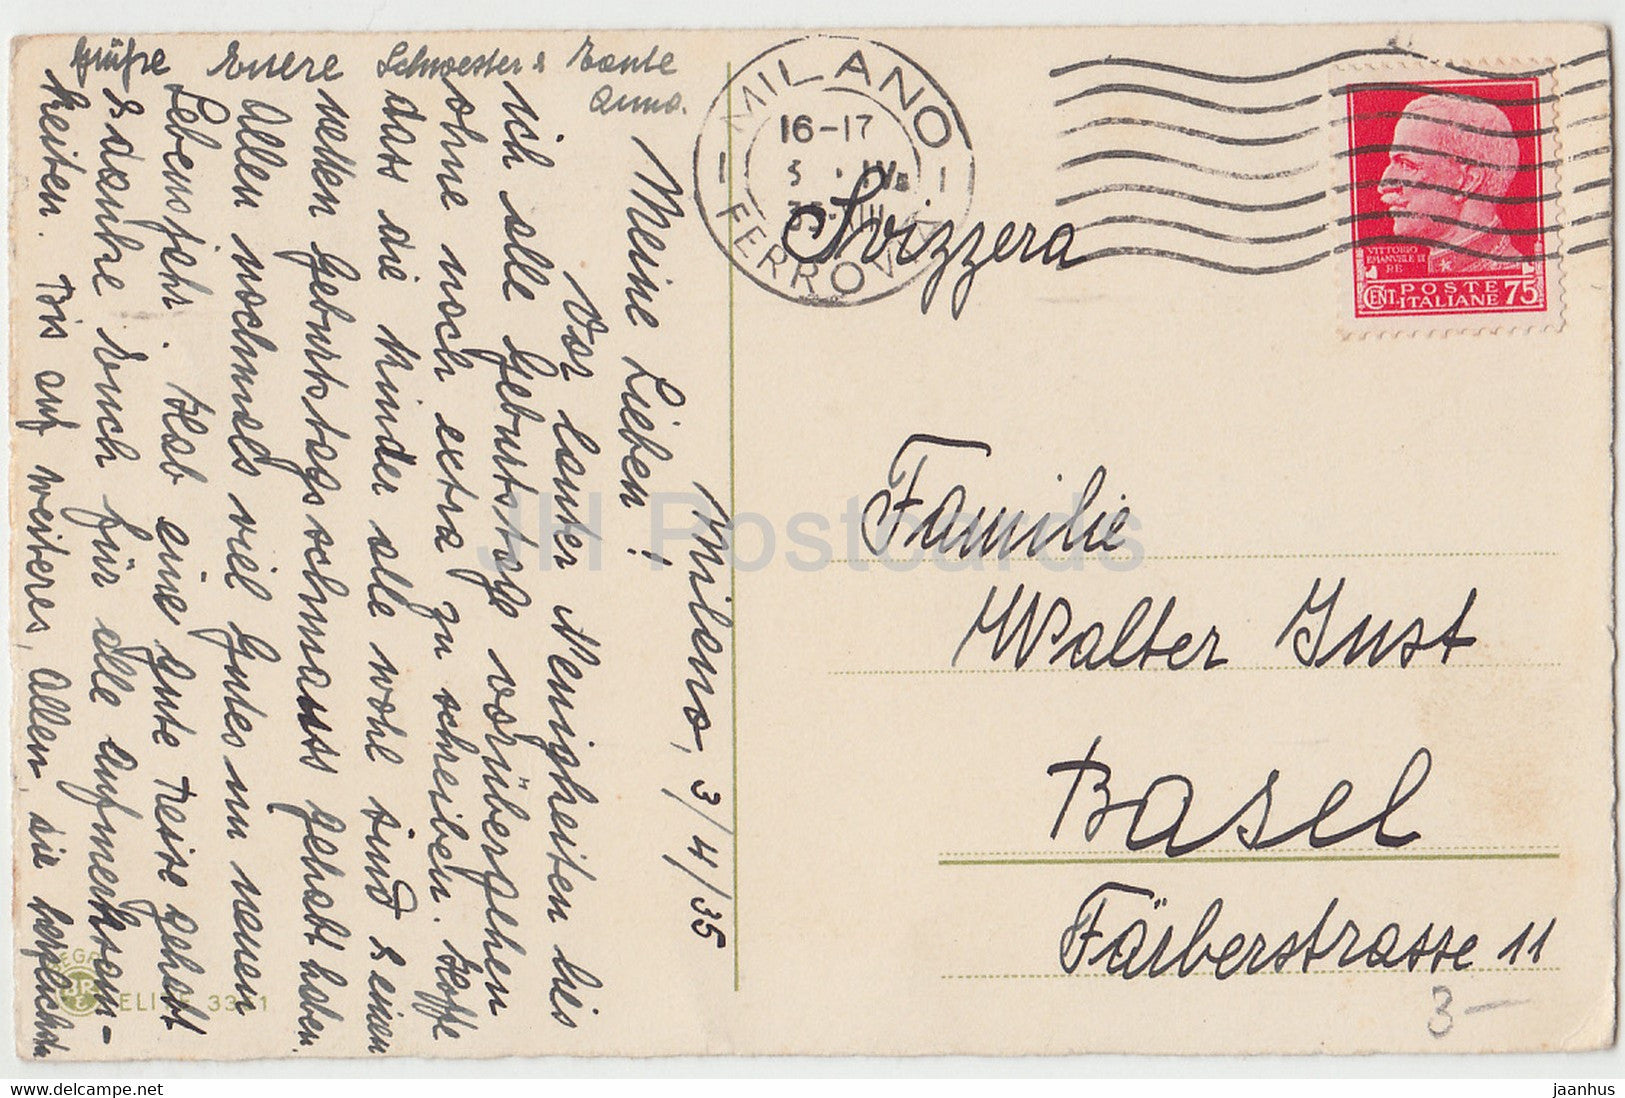 Milano, 3/4/35
Meine Lieben!
Vor lauter Neuigkeiten lies
ich alle Geburtstage vorübergehen
ohne noch extra zu schreiben. Hoffe
dass die Kinder alle wohl sind & einen
netten Geburtstagsschmauss gehabt haben.
Allen nochmals viel Gutes im neuen
Lebensjahr. Hab eine gute Reise gehabt
& danke Euch für alle Aufmerksam-
keiten. Bis auf weiteres, Allen, die herzlichsten
Grüsse Euere Schwester & Tante
Anna.
MILANO
FERROVIA
16-17
Svizzera
VITTORIO
EMANVELE III
RE
CENT. 75
POSTE
ITALIANE
Familie
Walter Just
Basel
Färberstrasse 11
3 -
ELITE
JH Postcards
www.delcampe.net
jaanhus